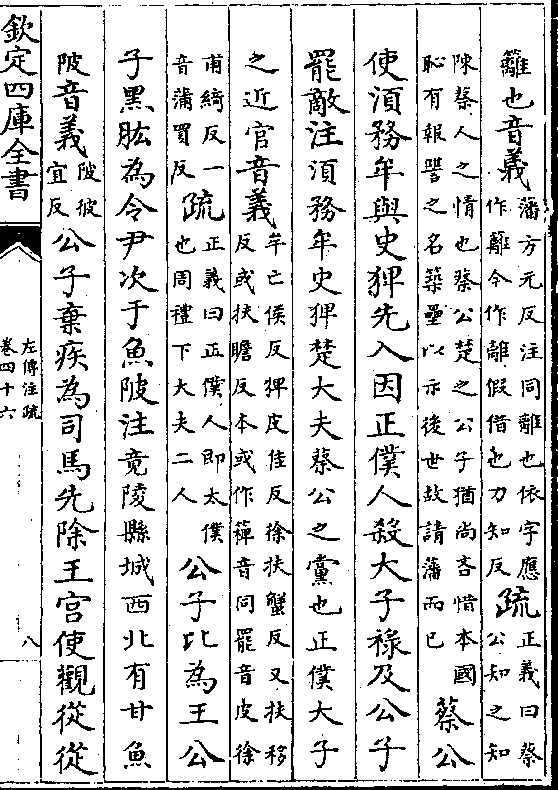 籬也音義藩方元反注同離也依字應作籬今作離假借也力知反疏正義曰蔡公知之知
陳蔡人之情也蔡公楚之公子猶尚吝惜本國恥有報讐之名築壘以示後世故請藩而已蔡公
使湏務牟與史猈先入因正僕人殺大子祿及公子
罷敵注湏務牟史猈楚大夫蔡公之黨也正僕大子
之近官音義牟亡侯反猈皮佳反徐扶蟹反又扶移反或扶瞻反本或作篺音同罷音皮徐
甫綺反一音蒲買反疏正義曰正僕人即太僕也周禮下大夫二人公子比為王公
子黑肱為令尹次于魚陂注竟陵縣城西北有甘魚
陂音義陂彼宜反公子棄疾為司馬先除王宫使觀從從
欽定四庫全書
左傳注疏
卷四十六
八